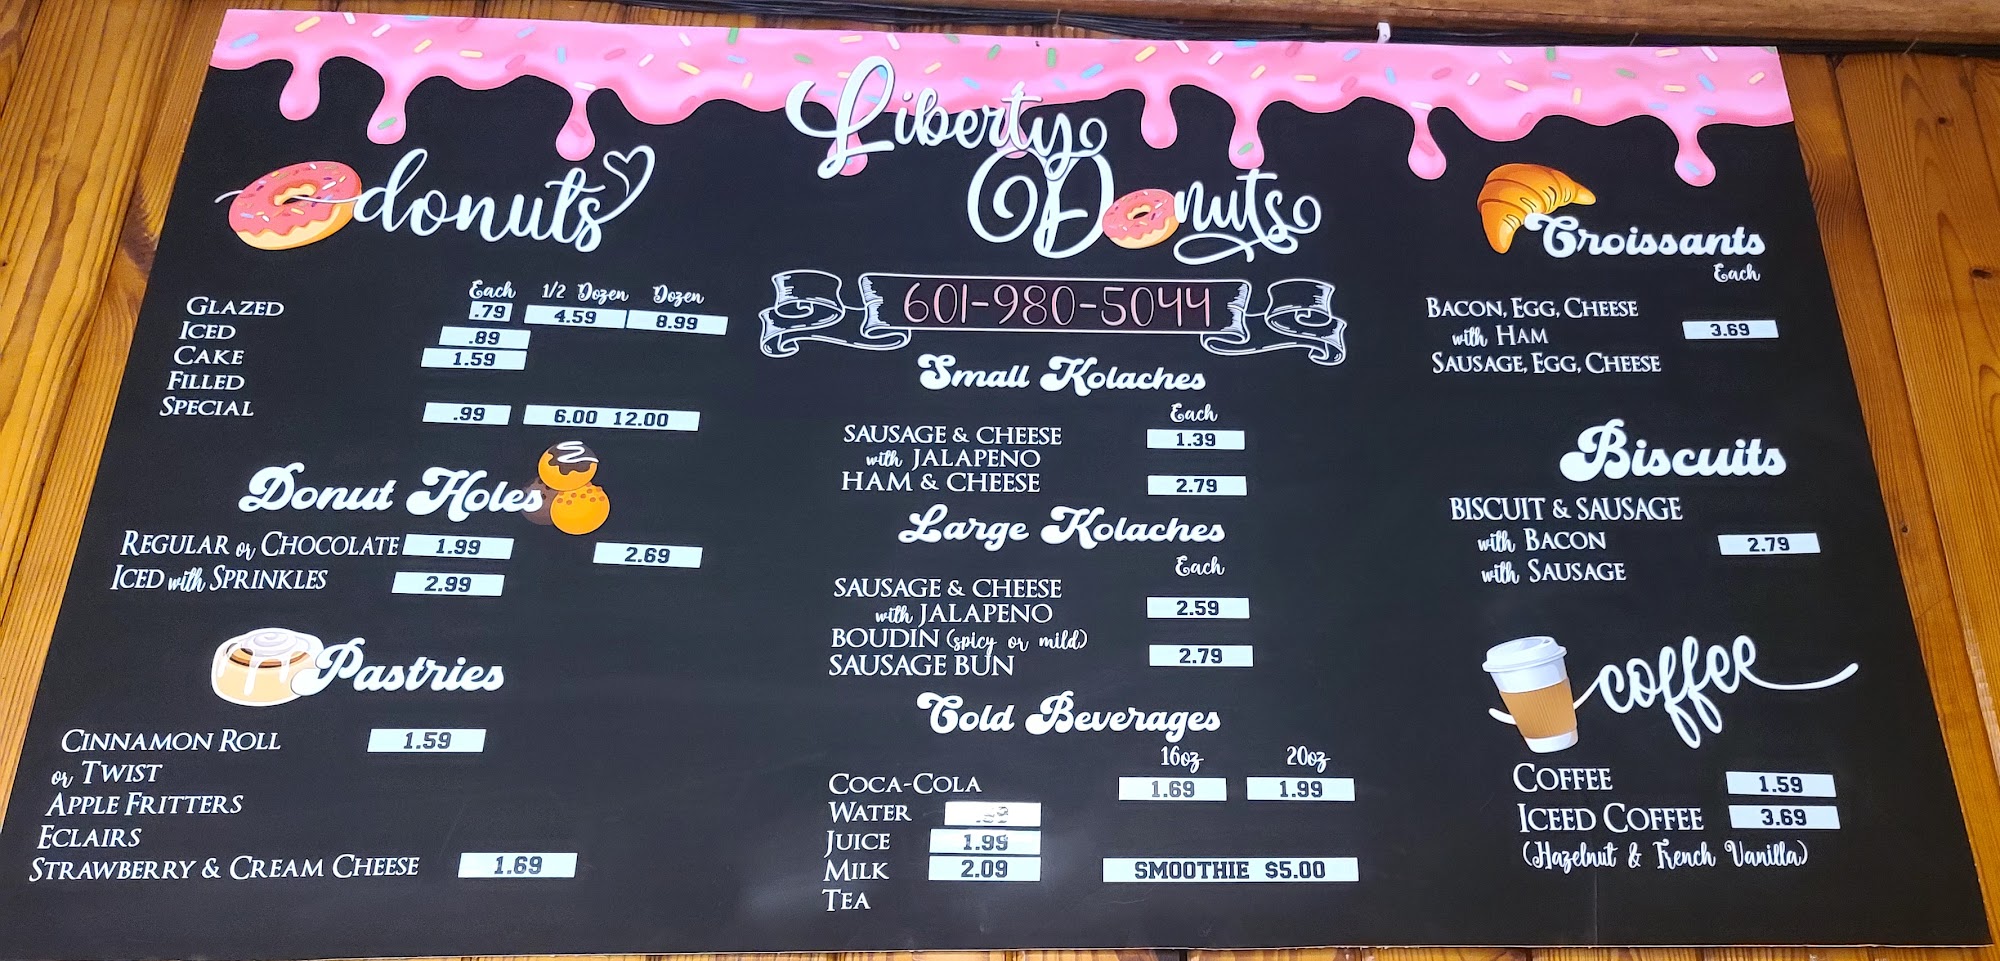 Liberty
Donuts
601-980-5044
donuts
Each 1/2 Dozen Dozen
GLAZED .79 4.59 8.99
ICED .89
CAKE 1.59
FILLED
SPECIAL .99 6.00 12.00
Donut Holes
REGULAR or CHOCOLATE 1.99 2.69
ICED with SPRINKLES 2.99
Pastries
CINNAMON ROLL 1.59
or TWIST
APPLE FRITTERS
ECLAIRS
STRAWBERRY & CREAM CHEESE 1.69
Small Kolaches
Each
SAUSAGE & CHEESE 1.39
with JALAPENO
HAM & CHEESE 2.79
Large Kolaches
Each
SAUSAGE & CHEESE
with JALAPENO 2.59
BOUDIN (spicy or mild)
SAUSAGE BUN 2.79
Cold Beverages
16oz 20oz
COCA-COLA 1.69 1.99
WATER
JUICE 1.99
MILK 2.09 SMOOTHIE $5.00
TEA
Croissants
Each
BACON, EGG, CHEESE
with HAM 3.69
SAUSAGE, EGG, CHEESE
Biscuits
BISCUIT & SAUSAGE
with BACON 2.79
with SAUSAGE
coffee
COFFEE 1.59
ICEED COFFEE 3.69
(Hazelnut & French Vanilla)